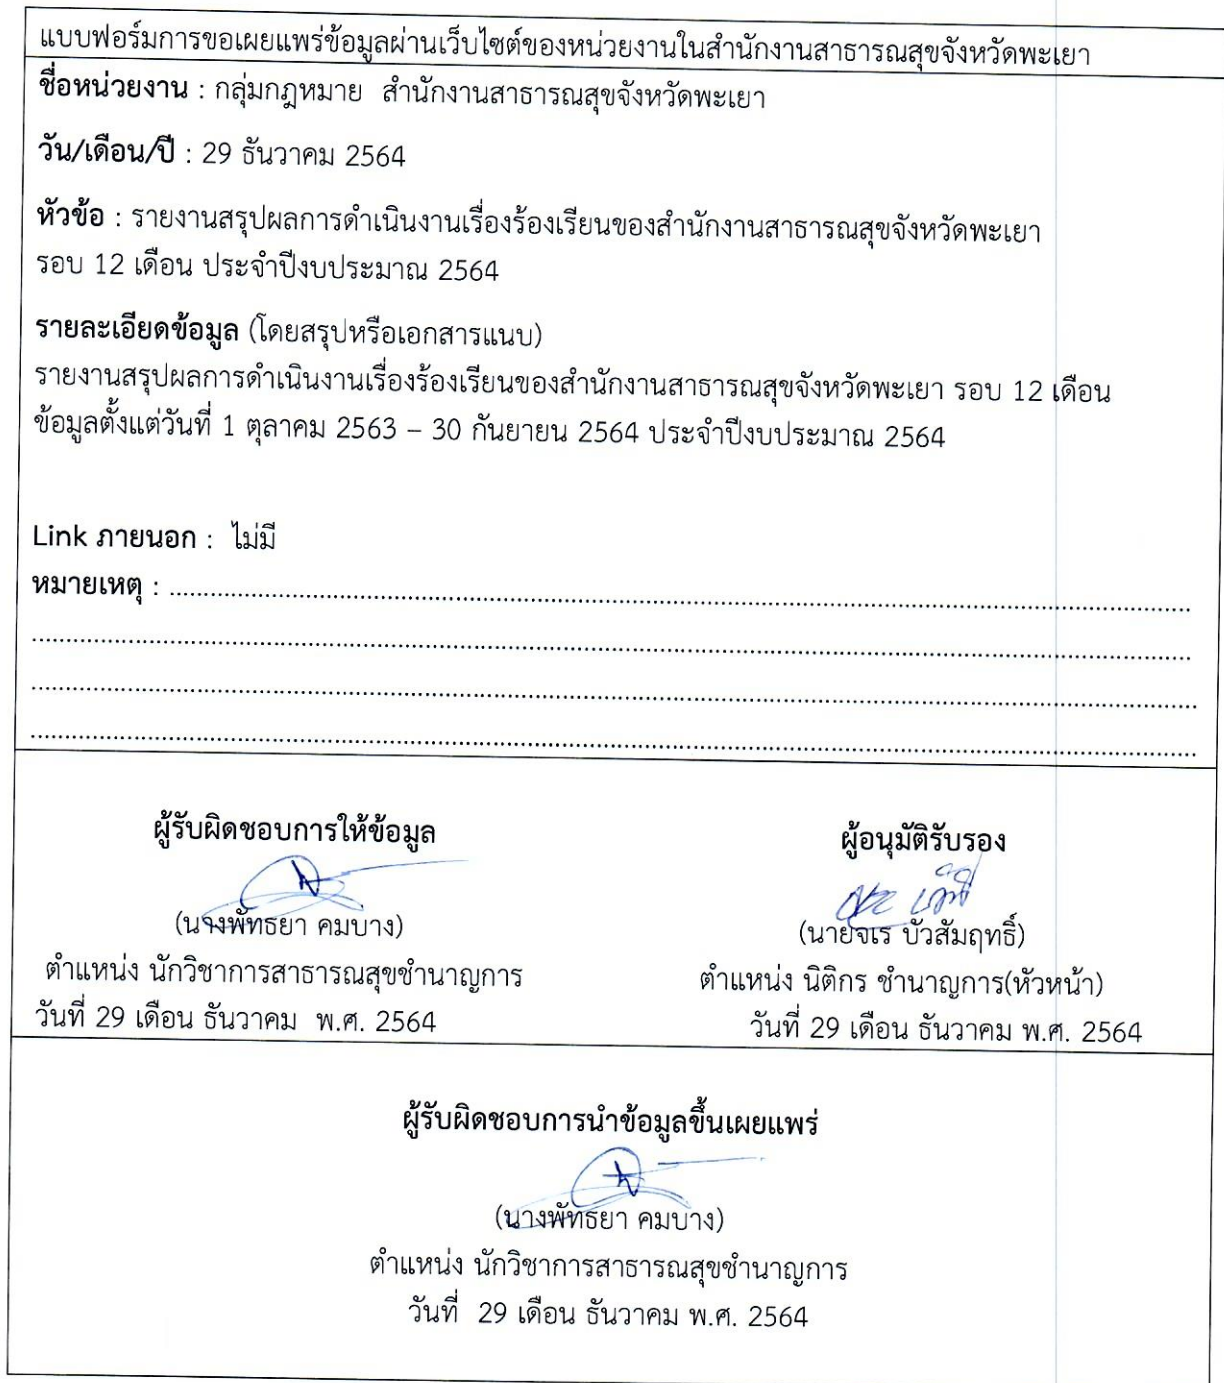 แบบฟอร์มการขอเผยแพร่ข้อมูลผ่านเว็บไซต์ของหน่วยงานในสำนักงานสาธารณสุขจังหวัดพะเยา
ชื่อหน่วยงาน : กลุ่มกฎหมาย สำนักงานสาธารณสุขจังหวัดพะเยา
วัน/เดือน/ปี : 29 ธันวาคม 2564
หัวข้อ : รายงานสรุปผลการดำเนินงานเรื่องร้องเรียนของสำนักงานสาธารณสุขจังหวัดพะเยา
รอบ 12 เดือน ประจำปีงบประมาณ 2564
รายละเอียดข้อมูล (โดยสรุปหรือเอกสารแนบ)
รายงานสรุปผลการดำเนินงานเรื่องร้องเรียนของสำนักงานสาธารณสุขจังหวัดพะเยา รอบ 12 เดือน
ข้อมูลตั้งแต่วันที่ 1 ตุลาคม 2563 – 30 กันยายน 2564 ประจำปีงบประมาณ 2564
Link ภายนอก : ไม่มี
หมายเหตุ :
ผู้รับผิดชอบการให้ข้อมูล
(นางพัทธยา คมบาง)
ตำแหน่ง นักวิชาการสาธารณสุขชำนาญการ
วันที่ 29 เดือน ธันวาคม พ.ศ. 2564
ผู้อนุมัติรับรอง
(นายจเร บัวสัมฤทธิ์)
ตำแหน่ง นิติกร ชำนาญการ(หัวหน้า)
วันที่ 29 เดือน ธันวาคม พ.ศ. 2564
ผู้รับผิดชอบการนำข้อมูลขึ้นเผยแพร่
(นางพัทธยา คมบาง)
ตำแหน่ง นักวิชาการสาธารณสุขชำนาญการ
วันที่ 29 เดือน ธันวาคม พ.ศ. 2564